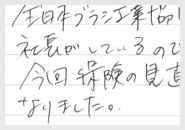 全日本ブラシ工業協
社長がしているので
今回保険の見直
なりました。